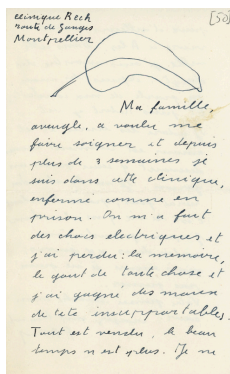 clinique Rech
route de Ganges
Montpellier
[50]
Ma famille,
aveugle, a voulu me
faire soigner et depuis
plus de 3 semaines je
suis dans cette clinique,
enfermé comme en
prison. On m'a fait
des chocs electriques et
j'ai perdu: la memoire,
le gout de toute chose et
j'ai gagné des maux
de tete insupportables.
Tout est vendu, le beau
temps n'est plus. Je ne